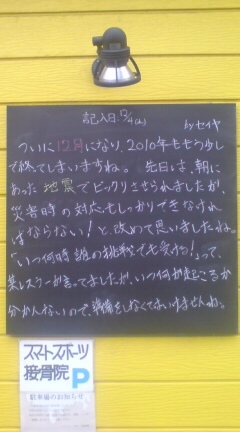 記入日.12/4(土)
by セイヤ
ついに12月になり、2010年ももう少し
で終ってしまいますね。先日は、朝に
あった地震でビックリさせられましたが、
災害時の対応もしっかりできなけれ
ばならない！と改めて思いましたね。
「いつ何時 誰の挑戦でも受ける！」って、
某レスラーが言ってましたが、いつ何が起こるか
分かんないので、準備をしなくてはいけませんね。
スマートスポーツ
接骨院 P
駐車場のお知らせ